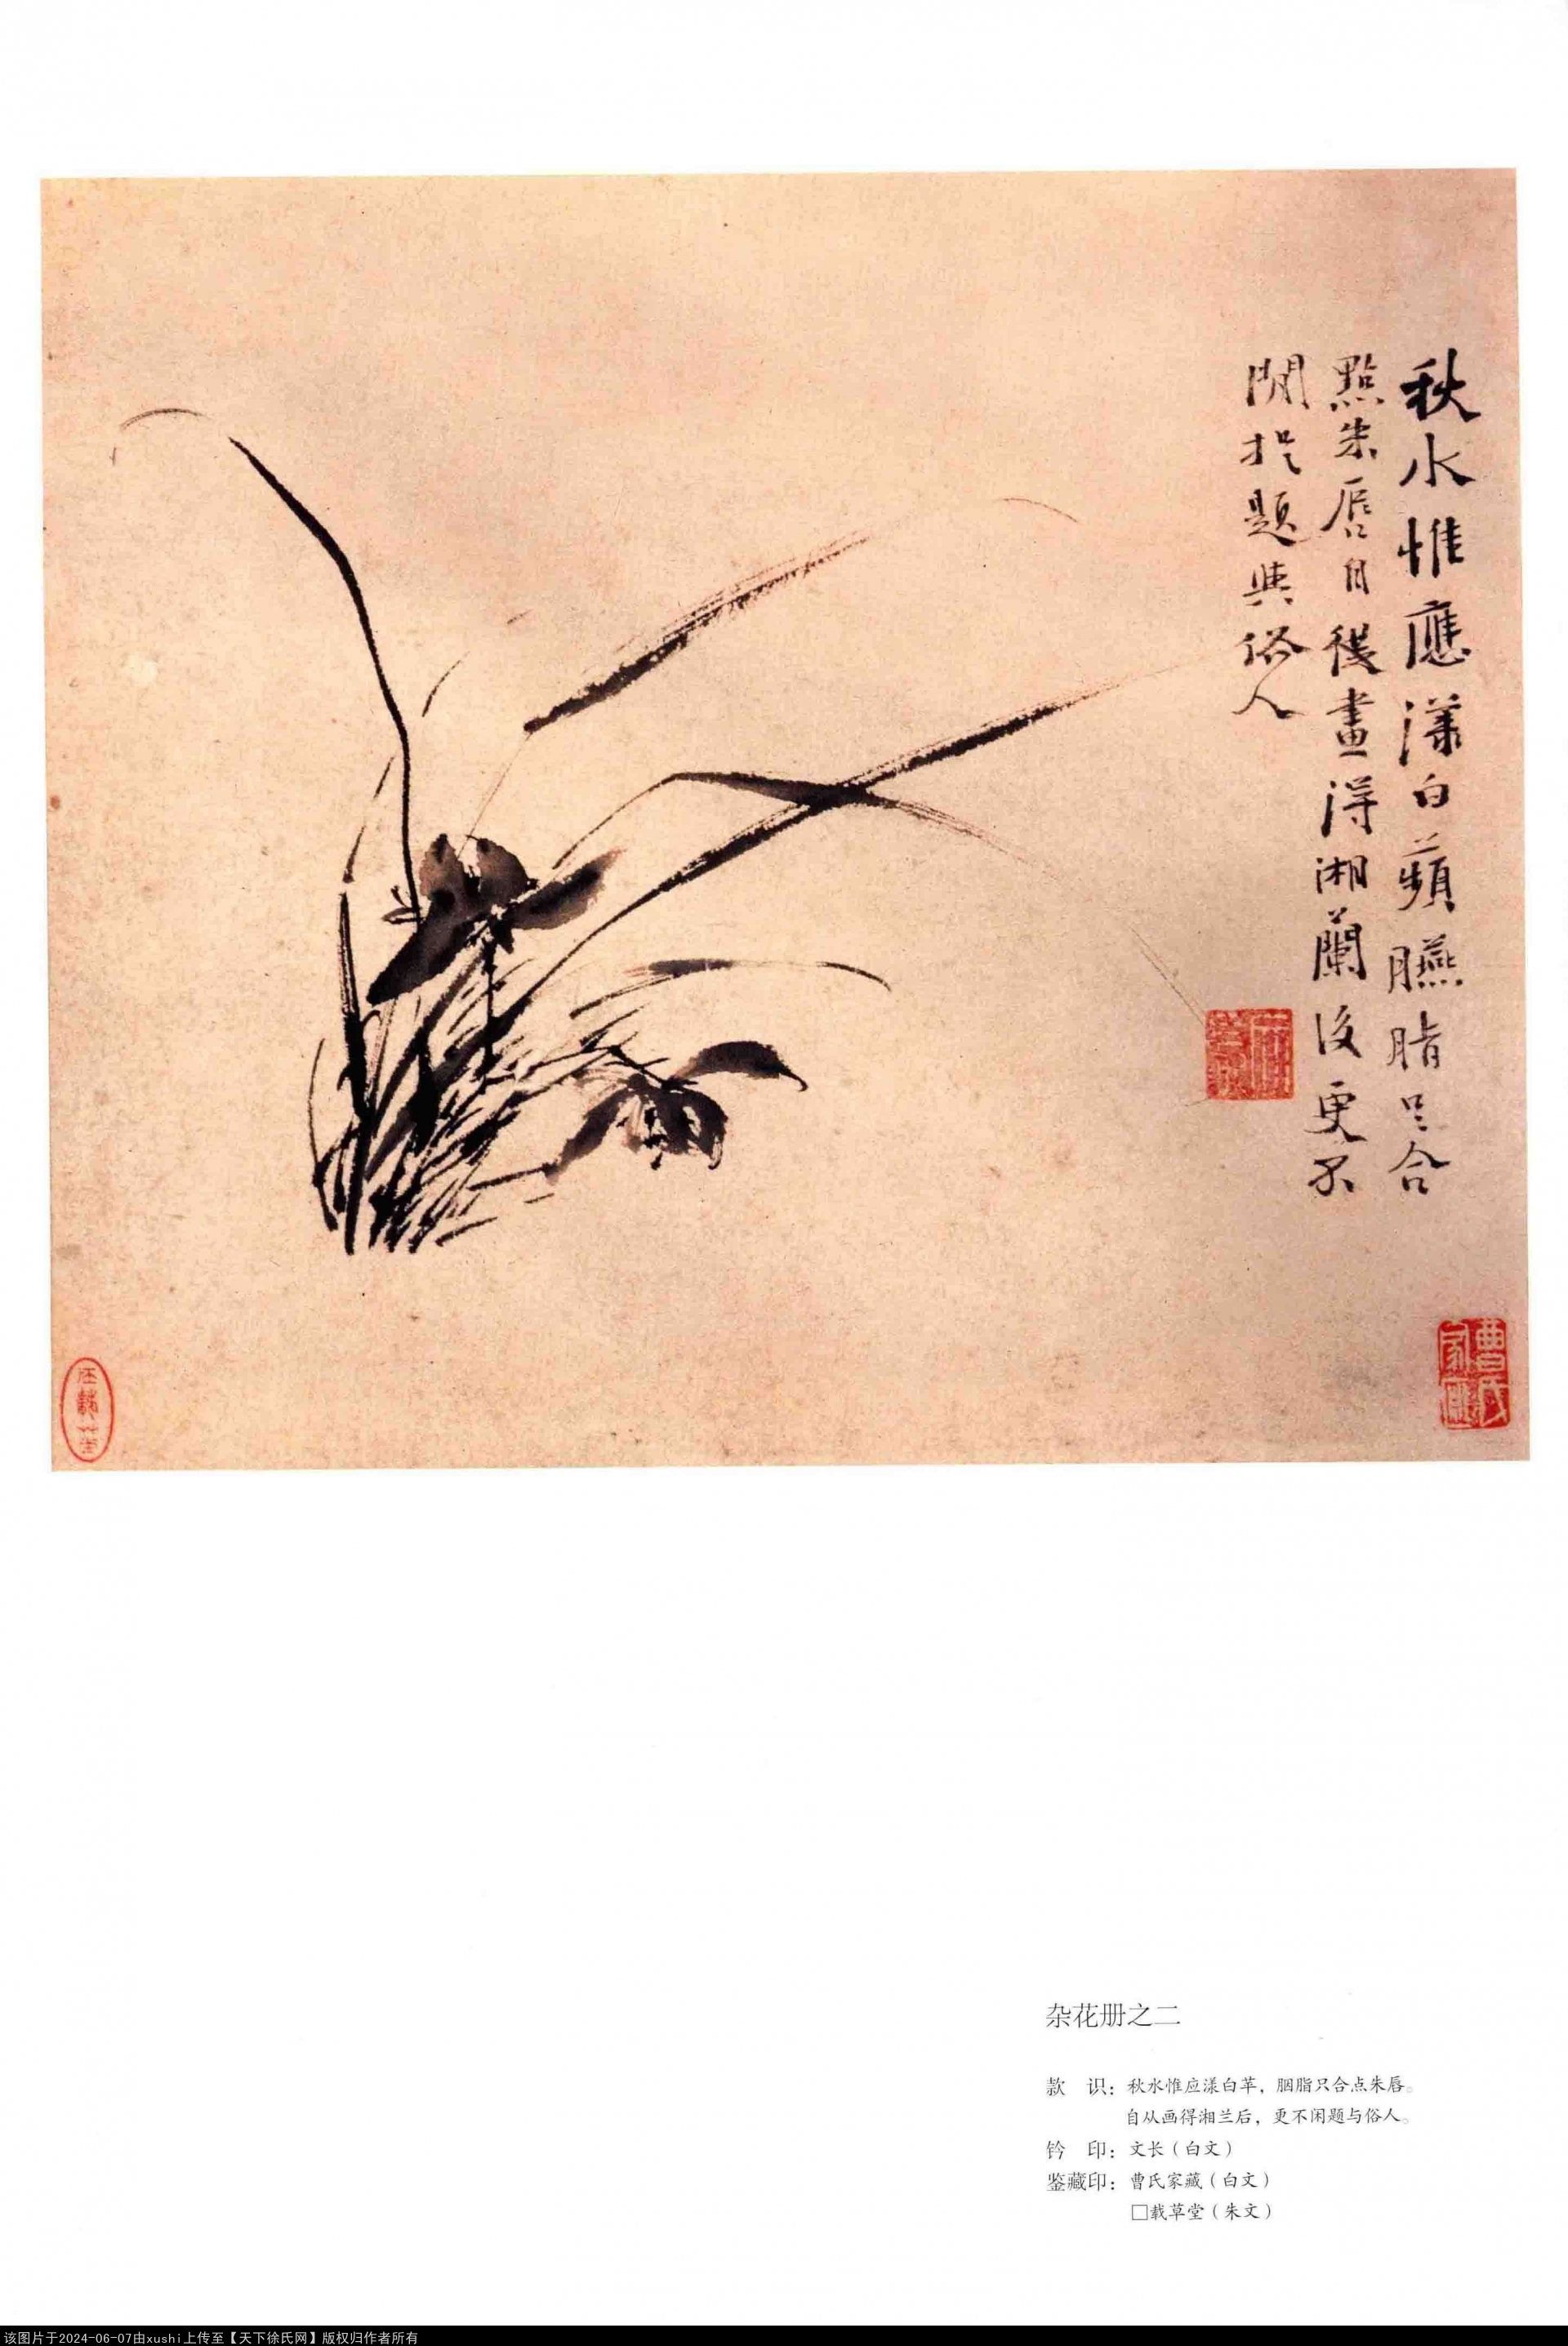 秋水惟應漾白蘋臙脂只合
點朱唇自從畫得湘蘭後更不
閒題與俗人
曹氏家藏
杂花册之二
款 识：秋水惟应漾白苹，胭脂只合点朱唇。
自从画得湘兰后，更不闲题与俗人。
钤 印：文长（白文）
鉴藏印：曹氏家藏（白文）
□载草堂（朱文）
该图片于2024-06-07由xushi上传至【天下徐氏网】版权归作者所有